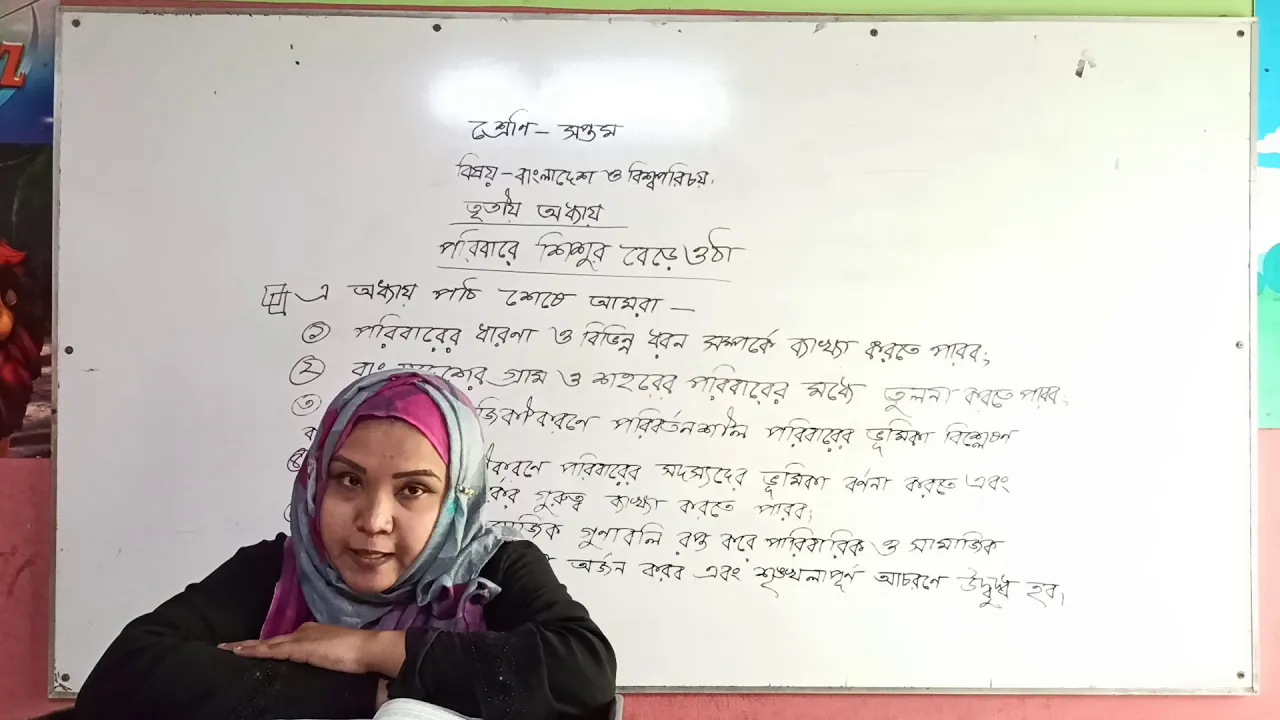 শ্রেণি - সপ্তম
বিষয় - বাংলাদেশ ও বিশ্বপরিচয়।
তৃতীয় অধ্যায়
পরিবারে শিশুর বেড়ে ওঠা
এ অধ্যায় পাঠ শেষে আমরা —
১ পরিবারের ধারণা ও বিভিন্ন ধরন সম্পর্কে ব্যাখ্যা করতে পারব;
২ গ্রাম ও শহরের পরিবারের মধ্যে তুলনা করতে পারব;
৩ পরিবর্তনশীল পরিবারের ভূমিকা বিশ্লেষণ
পরিবারের সদস্যদের ভূমিকা বর্ণনা করতে এবং
গুরুত্ব ব্যাখ্যা করতে পারব;
গুণাবলি রপ্ত করে পারিবারিক ও সামাজিক
অর্জন করব এবং শৃঙ্খলাপূর্ণ আচরণে উদ্বুদ্ধ হব।